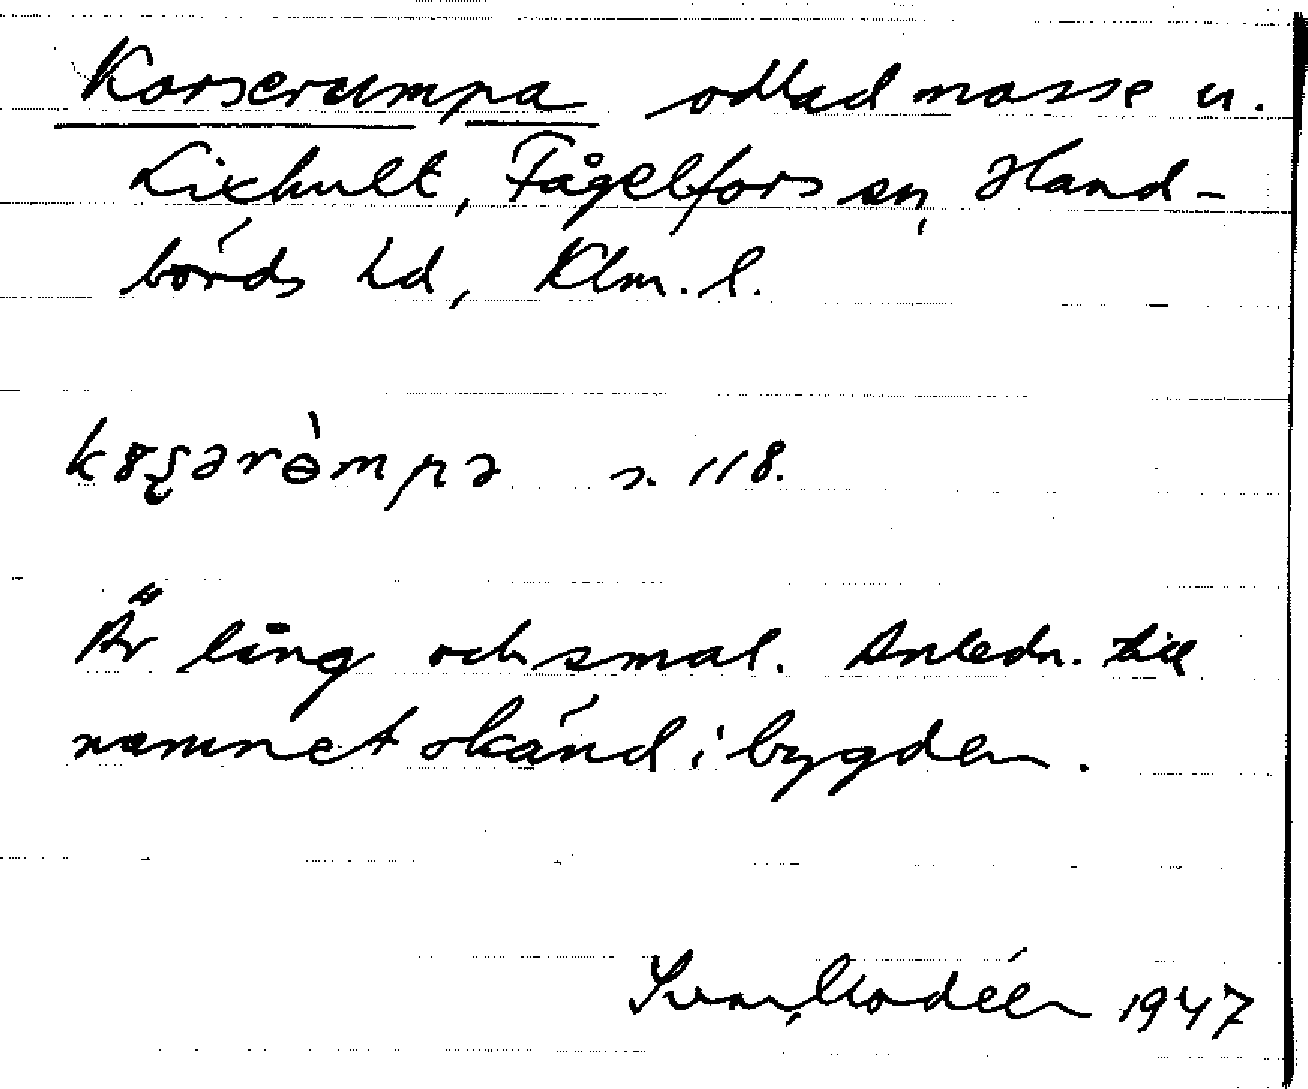 Korserumpa odlad mosse u.
Lixhult, Fågelfors sn, Hand-
börds hd, Klm. l.
s. 118.
Är lång och smal. Anledn. till
namnet okänd i bygden.
Sven Modéer 1947